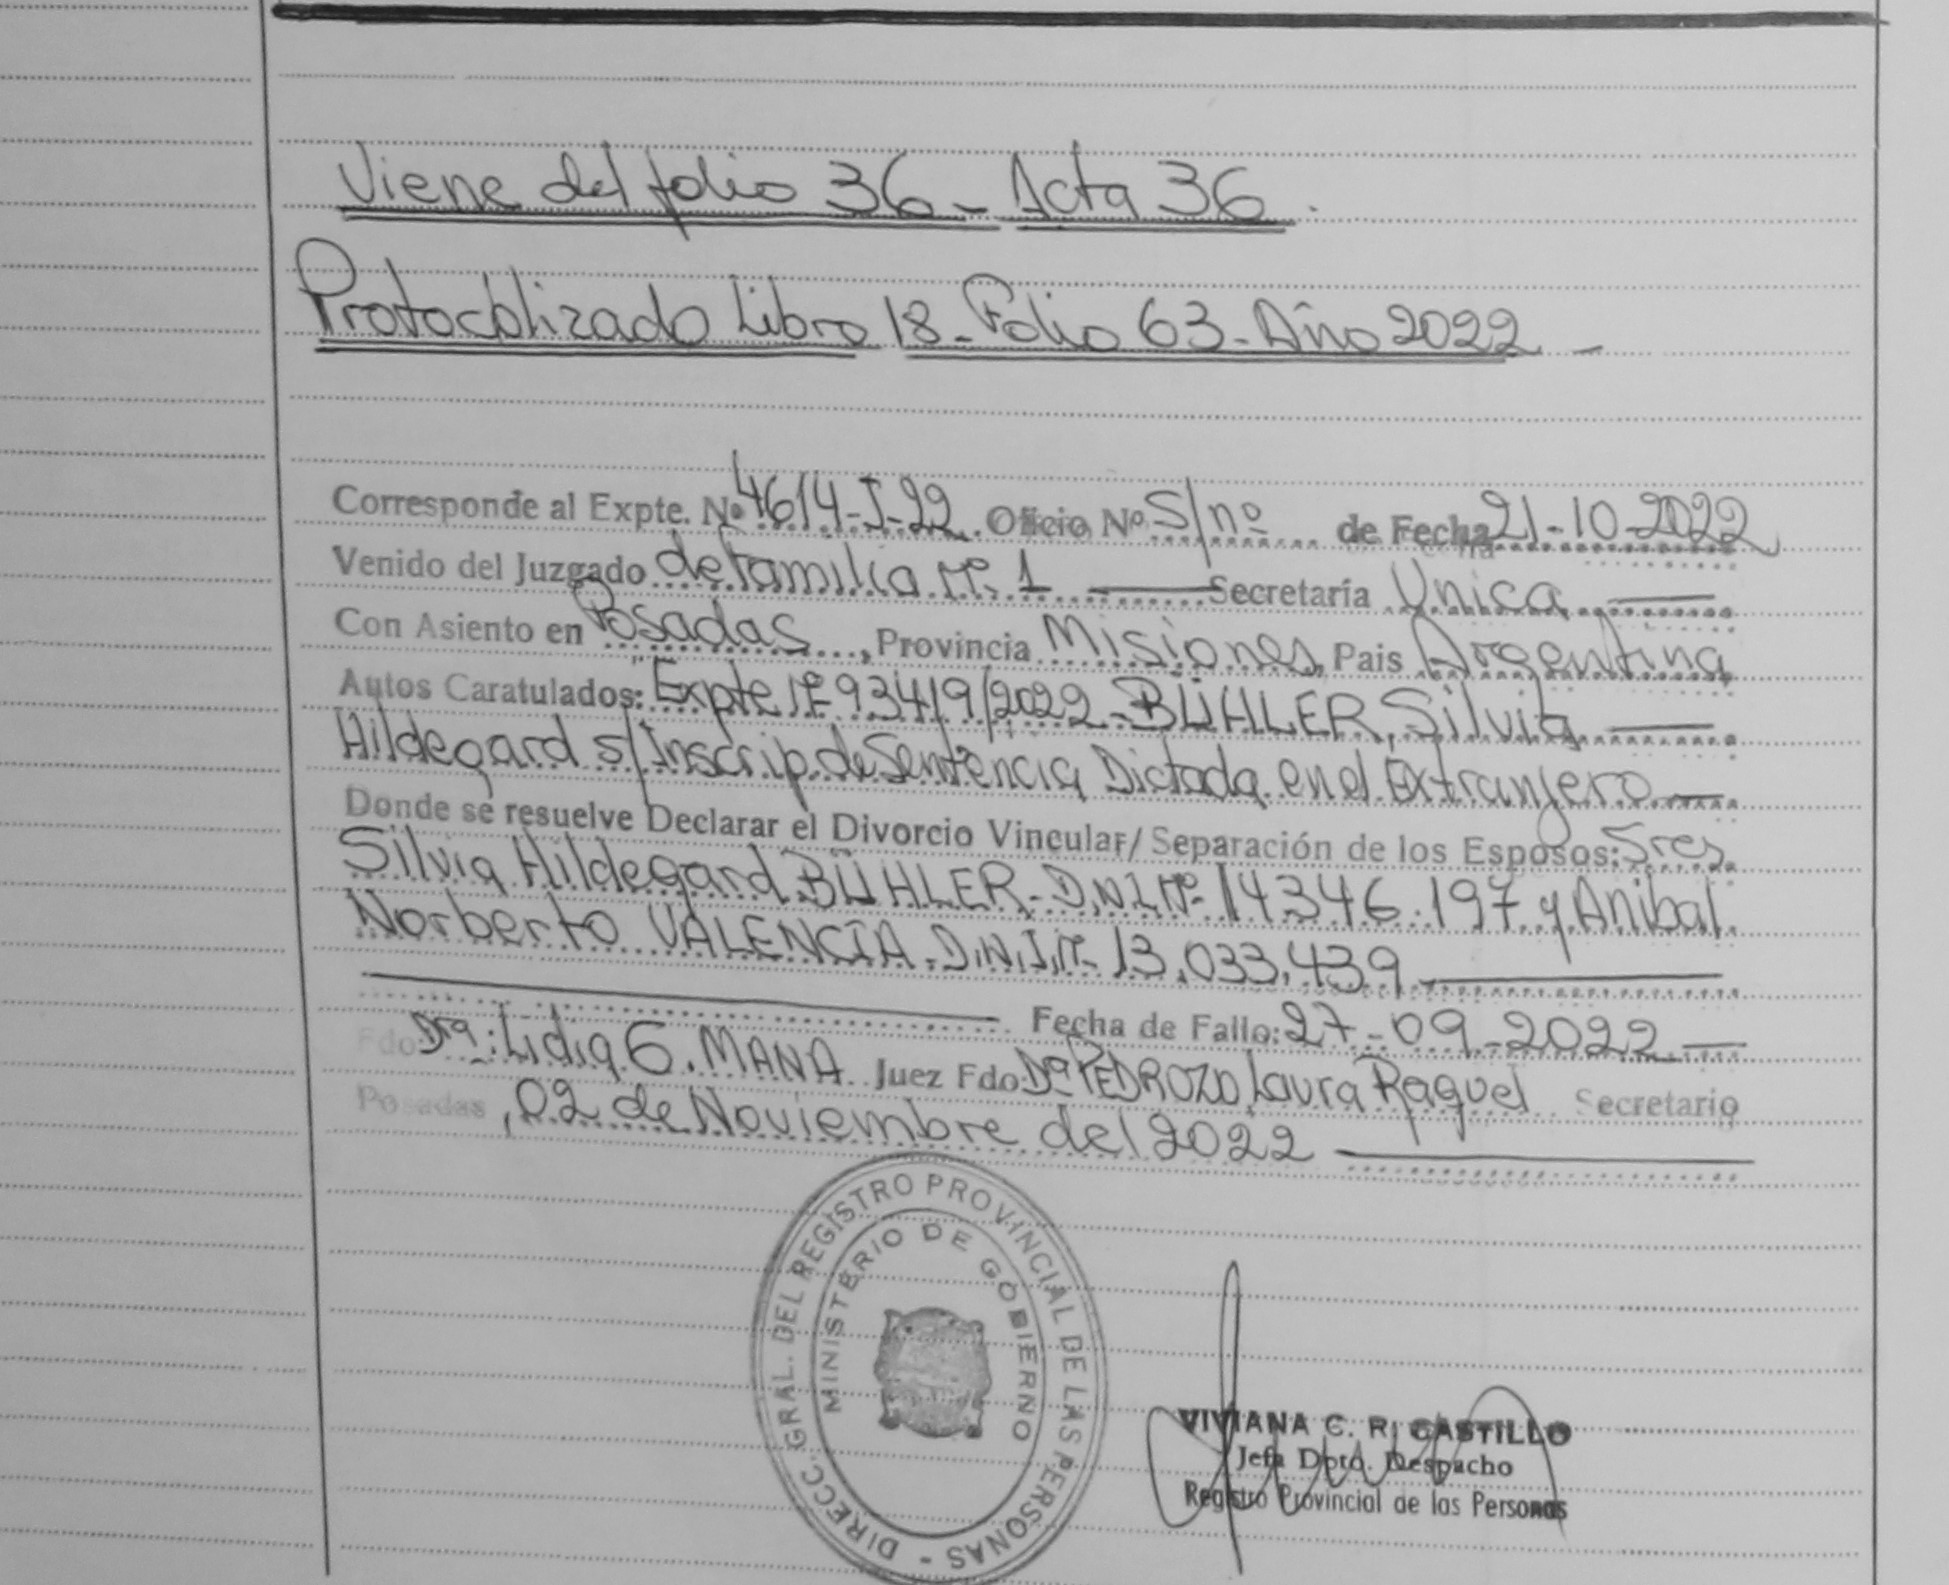 Viene del folio 36 - Acta 36.
Protocolizado Libro 18 - Folio 63 - Año 2022 -
Corresponde al Expte. Nº 4614-J-22. Oficio Nº S/nº de Fecha 21-10-2022
Venido del Juzgado de familia Nº 1 Secretaría Unica
Con Asiento en Posadas, Provincia Misiones, Pais Argentina
Autos Caratulados: "Expte Nº 93419/2022 - BÜHLER, Silvia
Hildegard s/ Inscrip. de Sentencia Dictada en el Extranjero
Donde se resuelve Declarar el Divorcio Vincular/ Separación de los Esposos: Sres.
Silvia Hildegard BÜHLER - D.N.I. Nº 14.346.197 y Anibal
Norberto VALENCIA - D.N.I. Nº 13.033.439
Fecha de Fallo: 27-09-2022
Fdo: Dra: Lidia G. MANA Juez Fdo: Dra PEDROZO Laura Raquel Secretario
Posadas, 02 de Noviembre del 2022
DIRECC. GRAL. DEL REGISTRO PROVINCIAL DE LAS PERSONAS -
MINISTERIO DE GOBIERNO
VIVIANA C. R. CASTILLO
Jefa Dpto. Despacho
Registro Provincial de las Personas